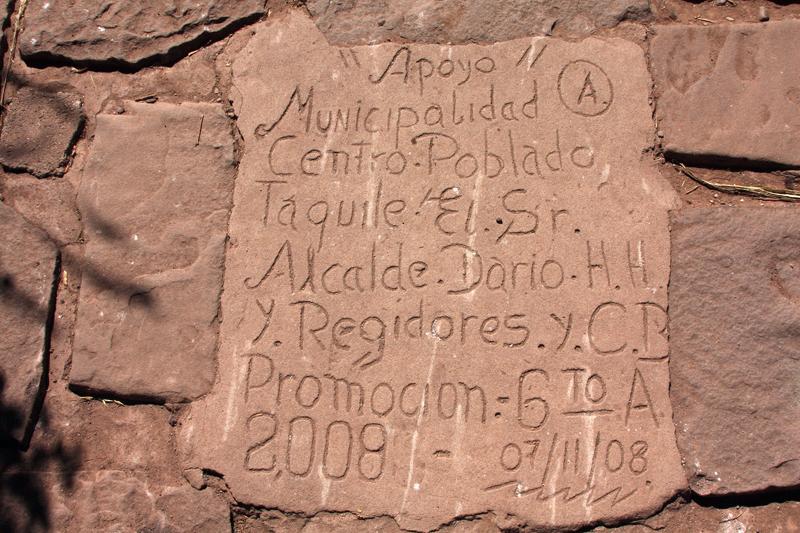 "Apoyo" A.
Municipalidad
Centro.Poblado,
Taquile."El.Sr.
Alcalde.Dario.H.H
Y.Regidores.y.C.D
Promocion=6TO A
2,008 - 07/11/08.